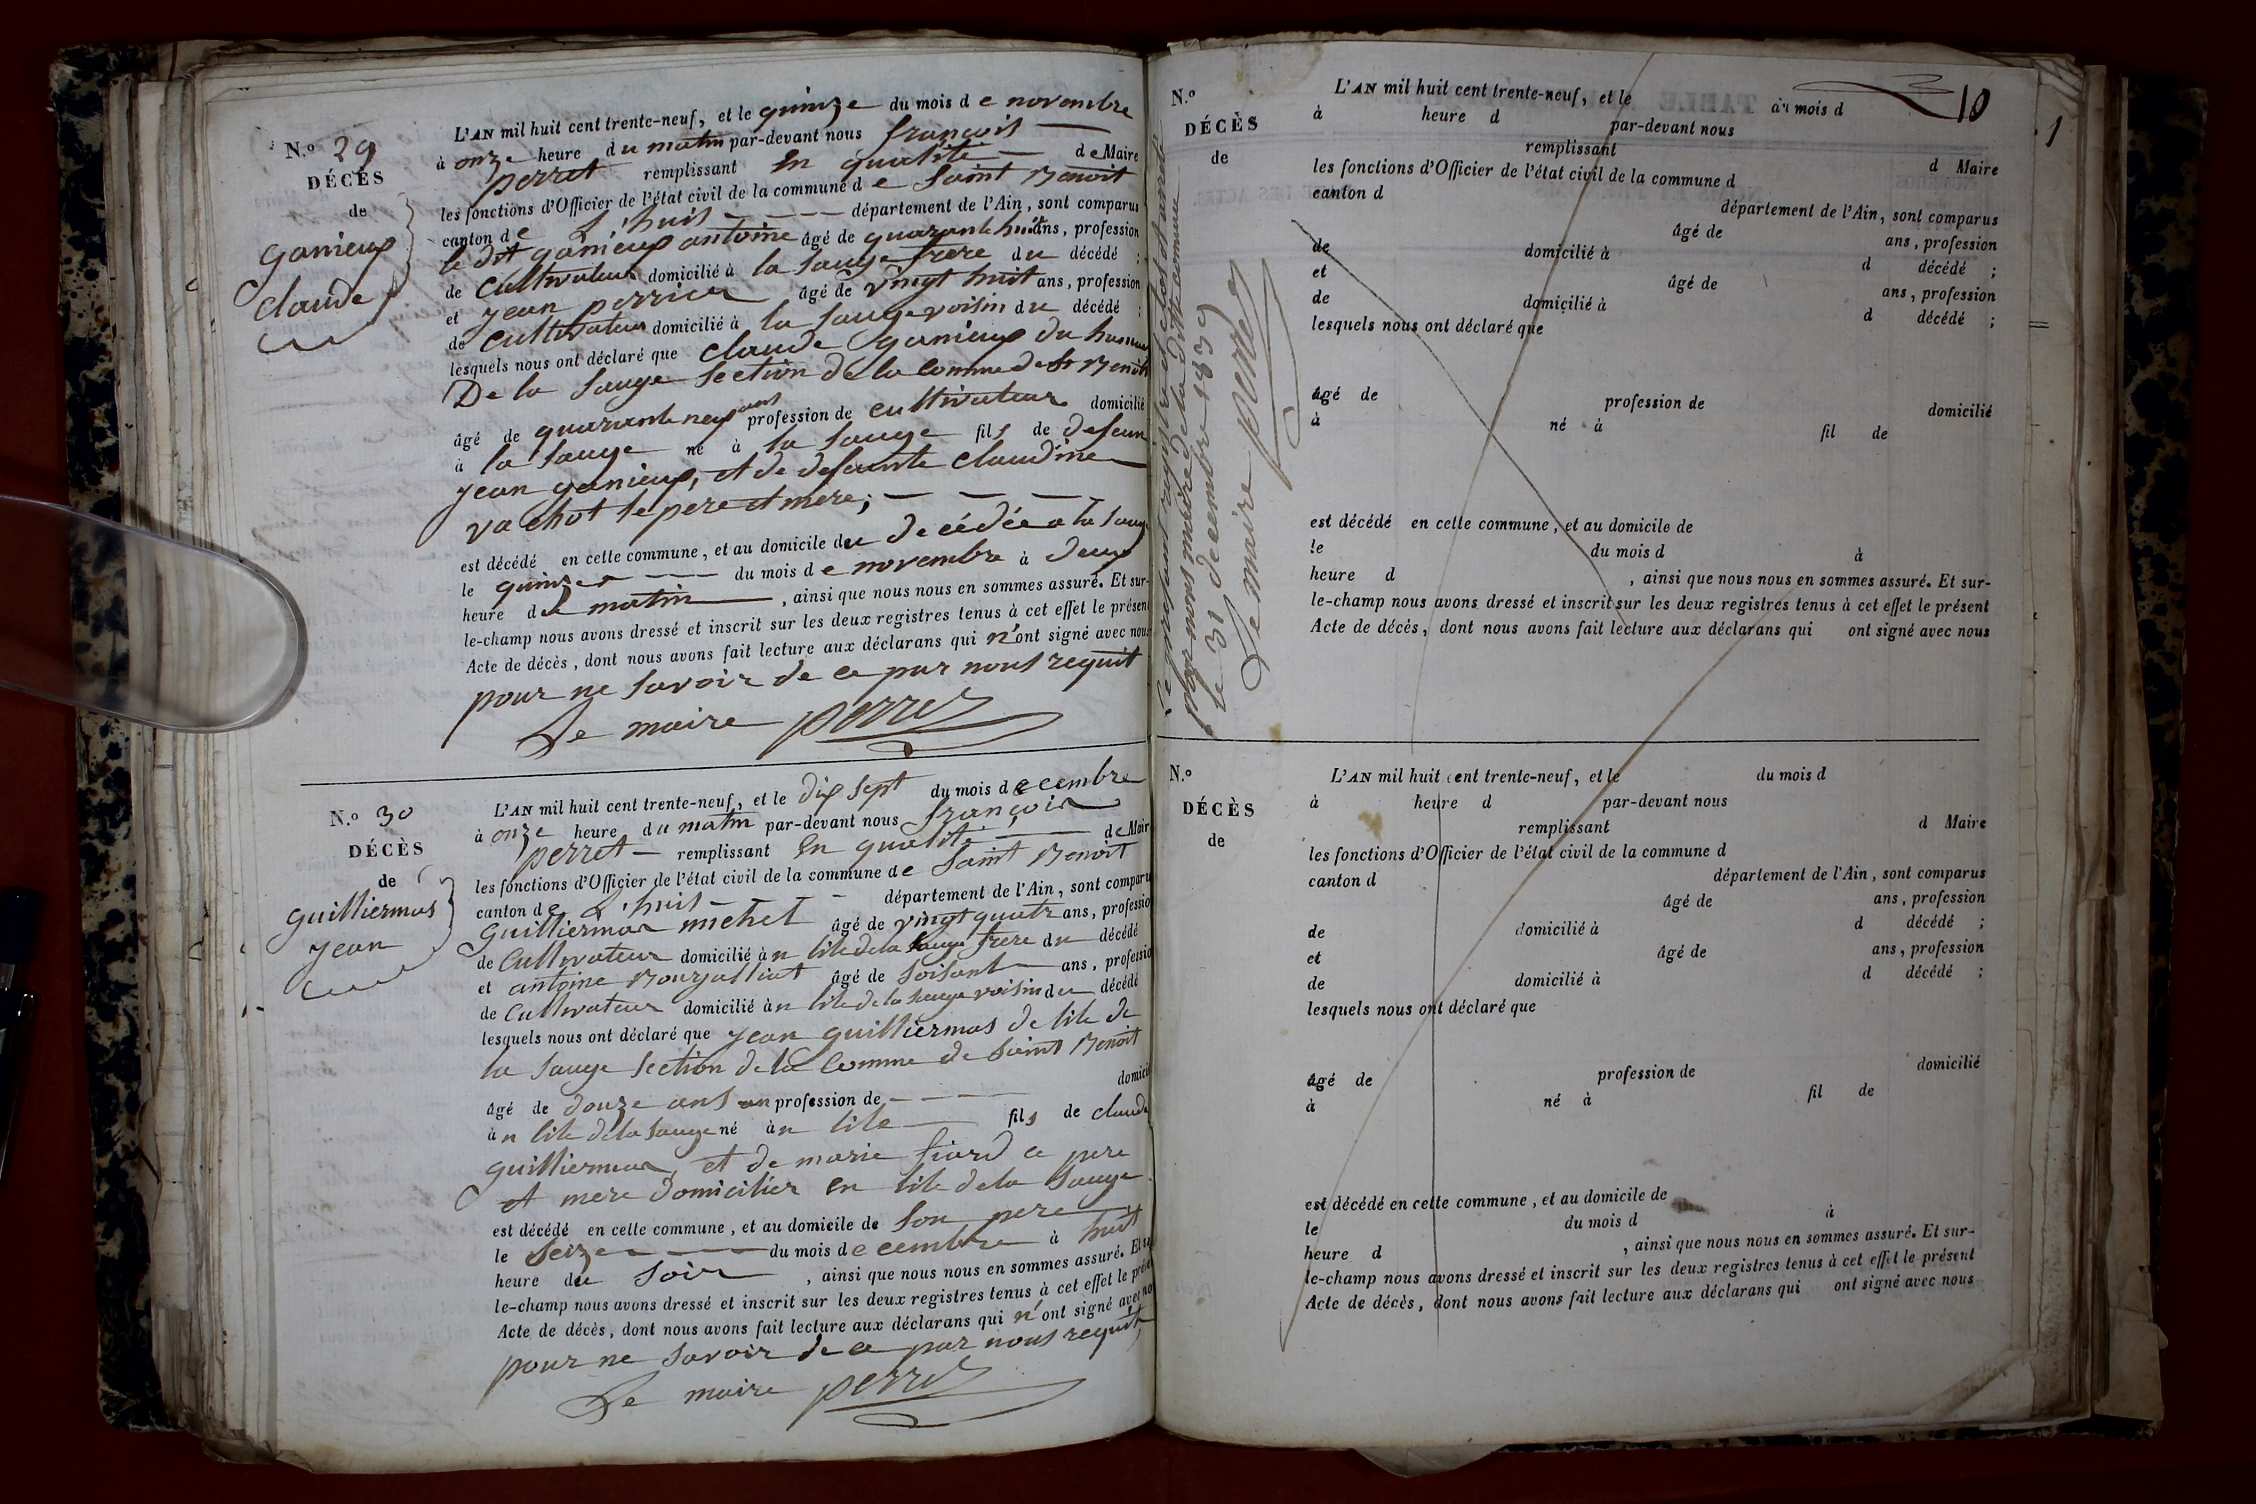 N.o 29
DÉCÈS
de
ganieux
claude
L'AN mil huit cent trente-neuf, et le quinze du mois de novembre
à onze heure du matin par-devant nous françois
perret remplissant en qualité de Maire
les fonctions d'Officier de l'état civil de la commune de saint Benoit
canton de L'huis département de l'Ain, sont comparus
le dit ganieux antoine âgé de quarante huit ans, profession
de cultivateur domicilié à la sauge frere du décédé ;
et jean perrier âgé de vingt huit ans, profession
de cultivateur domicilié à la sauge voisin du décédé ;
lesquels nous ont déclaré que claude ganieux du hameau
De la sauge section de la comme de st Benoit
âgé de quarante neuf ans profession de cultivateur domicilié
à la sauge né à la sauge fils de defeun
jean ganieux, et de defeunte claudine
vachot se pere et mere;
est décédé en cette commune, et au domicile du decédée a la sauge
le quinze du mois de novembre à deux
heure du matin, ainsi que nous nous en sommes assuré. Et sur-
le-champ nous avons dressé et inscrit sur les deux registres tenus à cet effet le présent
Acte de décès, dont nous avons fait lecture aux déclarans qui n'ont signé avec nous
pour ne savoir de ce par nous requit
Le maire perret
N.o 30
DÉCÈS
de
guilliermas
jean
L'AN mil huit cent trente-neuf, et le dix sept du mois decembre
à onze heure du matin par-devant nous françois
perret remplissant en qualité de Maire
les fonctions d'Officier de l'état civil de la commune de saint Benoit
canton de L'huis département de l'Ain, sont comparus
guilliermas michel âgé de vingt quatr ans, profession
de cultivateur domicilié àn lile de la sauge frere du décédé
et antoine Bourgalliat âgé de soisante ans, profession
de cultivateur domicilié àn lile de la sauge voisin du décédé
lesquels nous ont déclaré que jean guilliermas de lile de
la sauge section de la comme de saint Benoit
âgé de douze ans an profession de domicilié
àn lile de la sauge né àn lile fils de claude
guilliermas, et de marie fiard ce pere
et mere domicilier en lile de la sauge
est décédé en cette commune, et au domicile de son pere
le seize du mois decembre à huit
heure du soir, ainsi que nous nous en sommes assuré. Et sur-
le-champ nous avons dressé et inscrit sur les deux registres tenus à cet effet le présent
Acte de décès, dont nous avons fait lecture aux déclarans qui n'ont signé avec nous
pour ne savoir de ce par nous requit
Le maire perret
Le present registre a été clos et arreté
par nous maire de la ditte commune
le 31 decembre 1839
Le maire perret
10
1
N.o
DÉCÈS
de
L'AN mil huit cent trente-neuf, et le du mois d
à heure d par-devant nous
remplissant d Maire
les fonctions d'Officier de l'état civil de la commune d
canton d département de l'Ain, sont comparus
âgé de ans, profession
de domicilié à d décédé ;
et âgé de ans, profession
de domicilié à d décédé ;
lesquels nous ont déclaré que
âgé de profession de domicilié
à né à fil de
est décédé en cette commune, et au domicile de
le du mois d à
heure d , ainsi que nous nous en sommes assuré. Et sur-
le-champ nous avons dressé et inscrit sur les deux registres tenus à cet effet le présent
Acte de décès, dont nous avons fait lecture aux déclarans qui ont signé avec nous
N.o
DÉCÈS
de
L'AN mil huit cent trente-neuf, et le du mois d
à heure d par-devant nous
remplissant d Maire
les fonctions d'Officier de l'état civil de la commune d
canton d département de l'Ain, sont comparus
âgé de ans, profession
de domicilié à d décédé ;
et âgé de ans, profession
de domicilié à d décédé ;
lesquels nous ont déclaré que
âgé de profession de domicilié
à né à fil de
est décédé en cette commune, et au domicile de
le du mois d à
heure d , ainsi que nous nous en sommes assuré. Et sur-
le-champ nous avons dressé et inscrit sur les deux registres tenus à cet effet le présent
Acte de décès, dont nous avons fait lecture aux déclarans qui ont signé avec nous